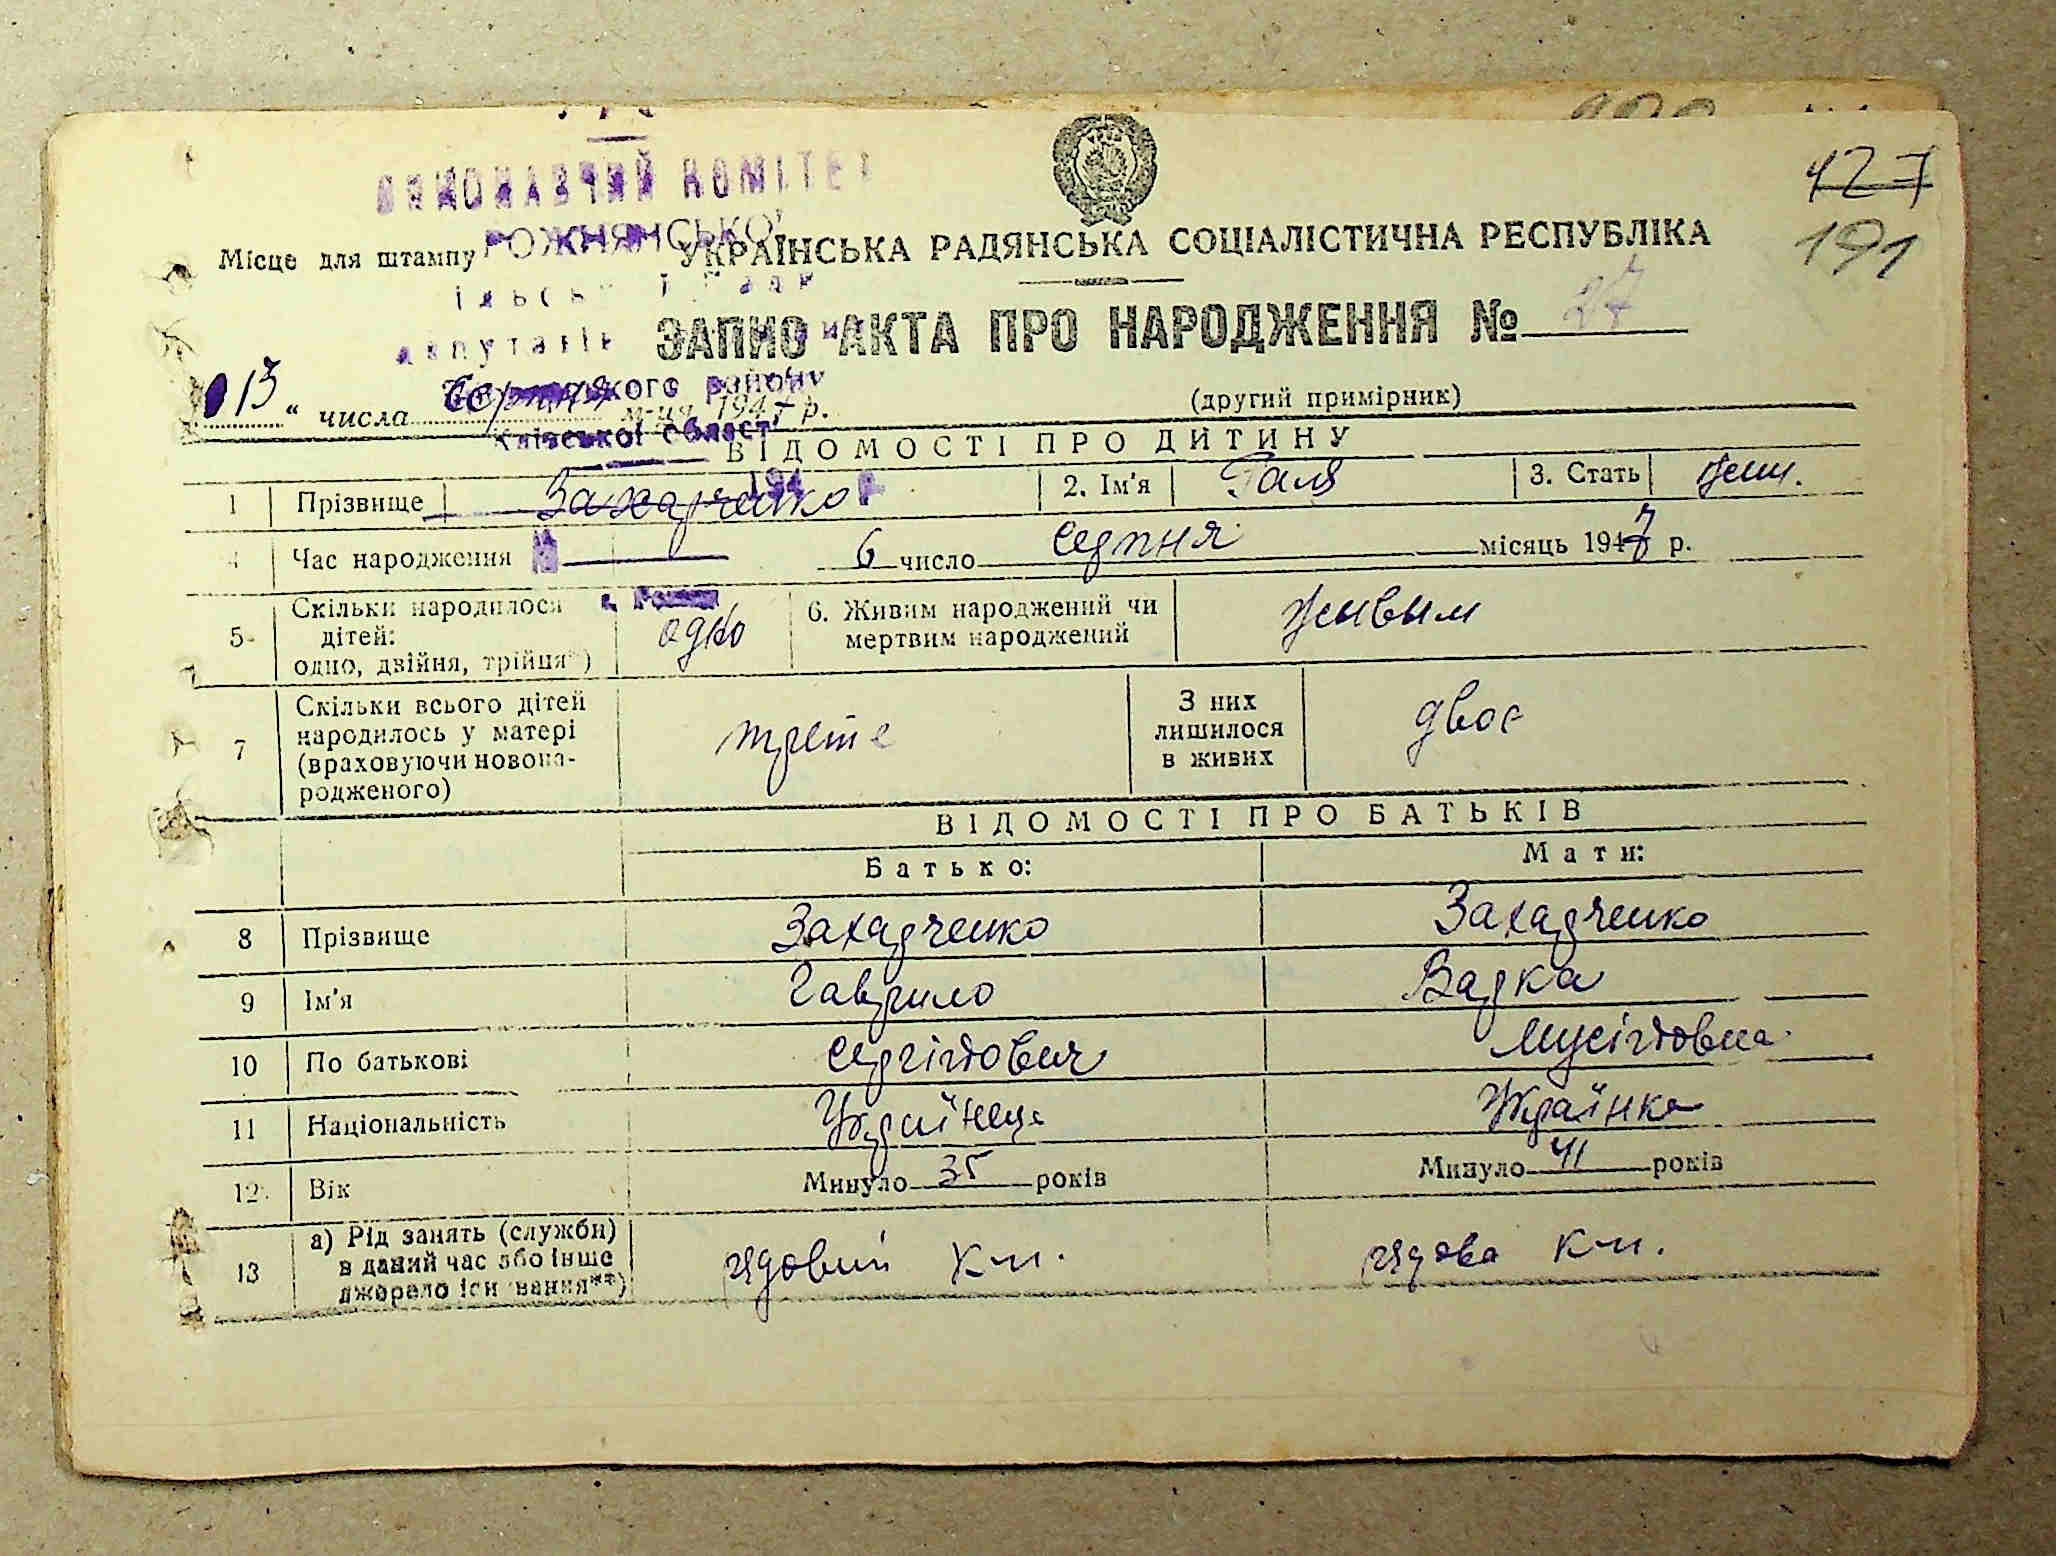 427
191
ВИКОНАВЧИЙ КОМІТЕТ
РОЖНЯНСЬКОЇ
Місце для штампу
УКРАЇНСЬКА РАДЯНСЬКА СОЦІАЛІСТИЧНА РЕСПУБЛІКА
ЗАПИС АКТА ПРО НАРОДЖЕННЯ № 27
депутатів
району
13 " числа серпня м-ця 1947 р.
(другий примірник)
Київської області
ВІДОМОСТІ ПРО ДИТИНУ
194 р.
1 Прізвище Захарченко 2. Ім'я Галя 3. Стать жен.
4 Час народження 6 число серпня місяць 1947 р.
5 Скільки народилося дітей: одно, двійня, трійця*) одно 6. Живим народжений чи мертвим народжений живым
7 Скільки всього дітей народилось у матері (враховуючи новонародженого) третє З них лишилося в живих двоє
ВІДОМОСТІ ПРО БАТЬКІВ
Батько: Мати:
8 Прізвище Захарченко Захарченко
9 Ім'я Гаврило Варка
10 По батькові Сергійович Мусійовна
11 Національність Українец Українка
12. Вік Минуло 35 років Минуло 41 років
13 а) Рід занять (служби) в даний час або інше джерело існування**) рядовий к-ч. рядова к-ч.